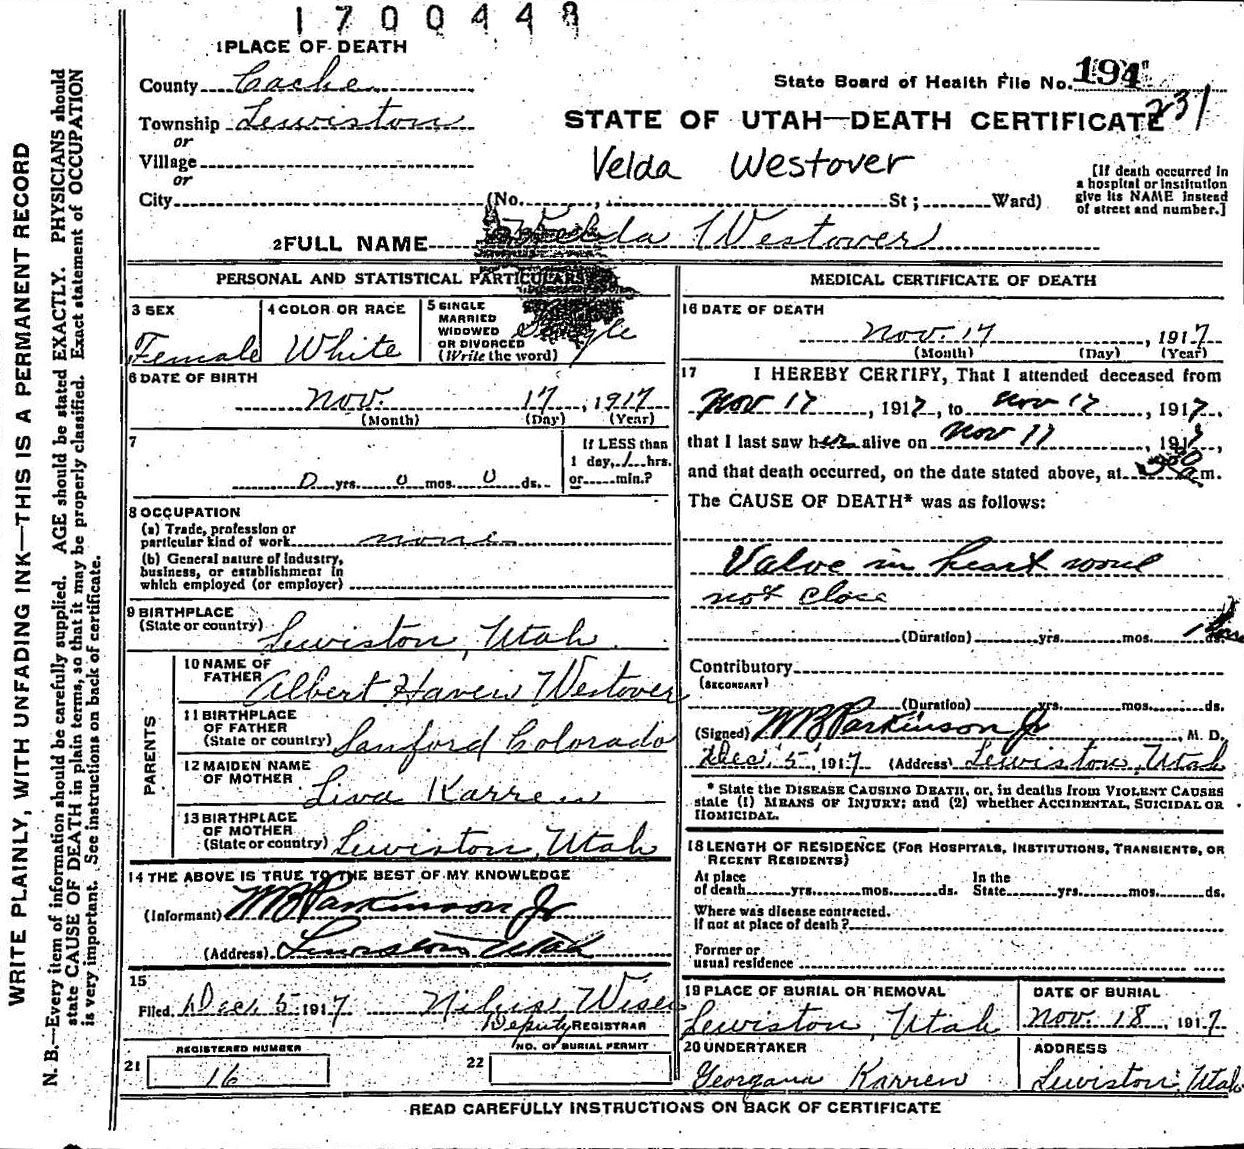 1700448
1 PLACE OF DEATH
County Cache
State Board of Health File No. 194
231
Township Lewiston
or
STATE OF UTAH—DEATH CERTIFICATE
Village
or
Velda Westover
City (No. , St; Ward)
[If death occurred in
a hospital or institution
give its NAME instead
of street and number.]
2 FULL NAME Velda Westover
PERSONAL AND STATISTICAL PARTICULARS
3 SEX
Female
4 COLOR OR RACE
White
5 SINGLE
MARRIED
WIDOWED
OR DIVORCED
(Write the word)
Single
6 DATE OF BIRTH
Nov. 17, 1917
(Month) (Day) (Year)
7
0 yrs. 0 mos. 0 ds.
If LESS than
1 day, 1 hrs.
or min.?
8 OCCUPATION
(a) Trade, profession or
particular kind of work none
(b) General nature of industry,
business, or establishment in
which employed (or employer)
9 BIRTHPLACE
(State or country) Lewiston, Utah
PARENTS
10 NAME OF
FATHER Albert Haven Westover
11 BIRTHPLACE
OF FATHER
(State or country) Sanford Colorado
12 MAIDEN NAME
OF MOTHER Liva Karren
13 BIRTHPLACE
OF MOTHER
(State or country) Lewiston, Utah
14 THE ABOVE IS TRUE TO THE BEST OF MY KNOWLEDGE
(Informant) WB Parkinson Jr
(Address) Lewiston Utah
15
Filed Dec, 5 1917 Wiser
Deputy REGISTRAR
REGISTERED NUMBER
21 16
NO. OF BURIAL PERMIT
22
MEDICAL CERTIFICATE OF DEATH
16 DATE OF DEATH
Nov. 17, 1917
(Month) (Day) (Year)
17 I HEREBY CERTIFY, That I attended deceased from
Nov 17, 1917, to Nov 17, 1917,
that I last saw her alive on Nov 17, 191
and that death occurred, on the date stated above, at m.
The CAUSE OF DEATH* was as follows:
Valve in heart woul
not close
(Duration) yrs. mos. 1 ds.
Contributory
(SECONDARY)
(Duration) yrs. mos. ds.
(Signed) WB Parkinson Jr, M. D.
Dec. 5, 1917 (Address) Lewiston, Utah
* State the DISEASE CAUSING DEATH, or, in deaths from VIOLENT CAUSES
state (1) MEANS OF INJURY; and (2) whether ACCIDENTAL, SUICIDAL OR
HOMICIDAL.
18 LENGTH OF RESIDENCE (FOR HOSPITALS, INSTITUTIONS, TRANSIENTS, OR
RECENT RESIDENTS)
At place
of death yrs. mos. ds.
In the
State yrs. mos. ds.
Where was disease contracted.
If not at place of death?
Former or
usual residence
19 PLACE OF BURIAL OR REMOVAL
Lewiston, Utah
DATE OF BURIAL
Nov. 18, 1917
20 UNDERTAKER
Georgana Karren
ADDRESS
Lewiston, Utah
READ CAREFULLY INSTRUCTIONS ON BACK OF CERTIFICATE
WRITE PLAINLY, WITH UNFADING INK—THIS IS A PERMANENT RECORD
N. B.—Every item of information should be carefully supplied. AGE should be stated EXACTLY. PHYSICIANS should
state CAUSE OF DEATH in plain terms, so that it may be properly classified. Exact statement of OCCUPATION
is very important. See instructions on back of certificate.